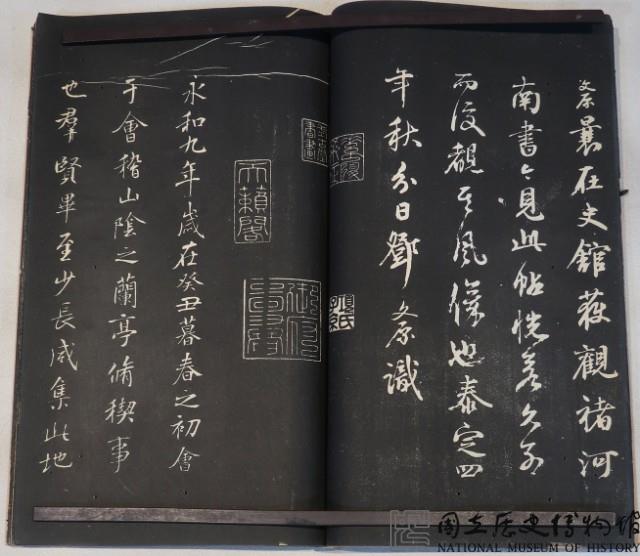 文原曩在史館獲觀褚河
南書今見此帖恍若久別
而復觀其風儀也泰定四
年秋分日鄧文原識
天籟閣
永和九年歲在癸丑暮春之初會
于會稽山陰之蘭亭脩稧事
也羣賢畢至少長咸集此地
國立歷史博物館
NATIONAL MUSEUM OF HISTORY